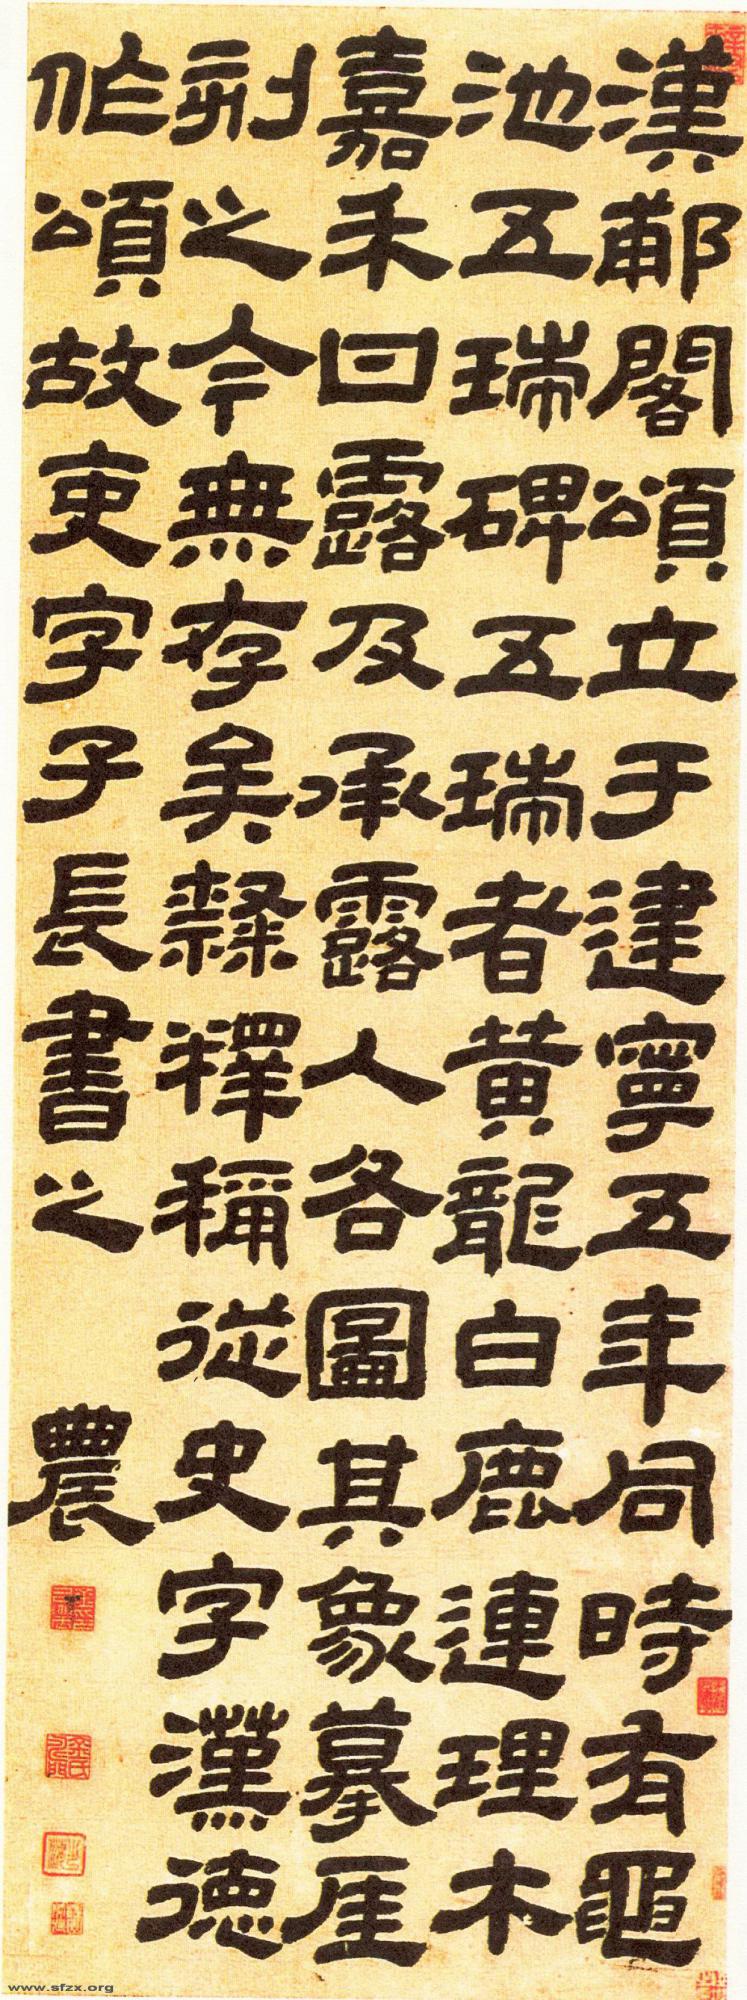 漢郙閣頌立于建寧五年同時有黽
池五瑞碑五瑞者黄龍白鹿連理木
嘉禾甘露及承露人各圖其象摹厓
刻之今無存矣隸釋稱從史字漢德
作頌故吏字子長書之 農
www.sfzx.org